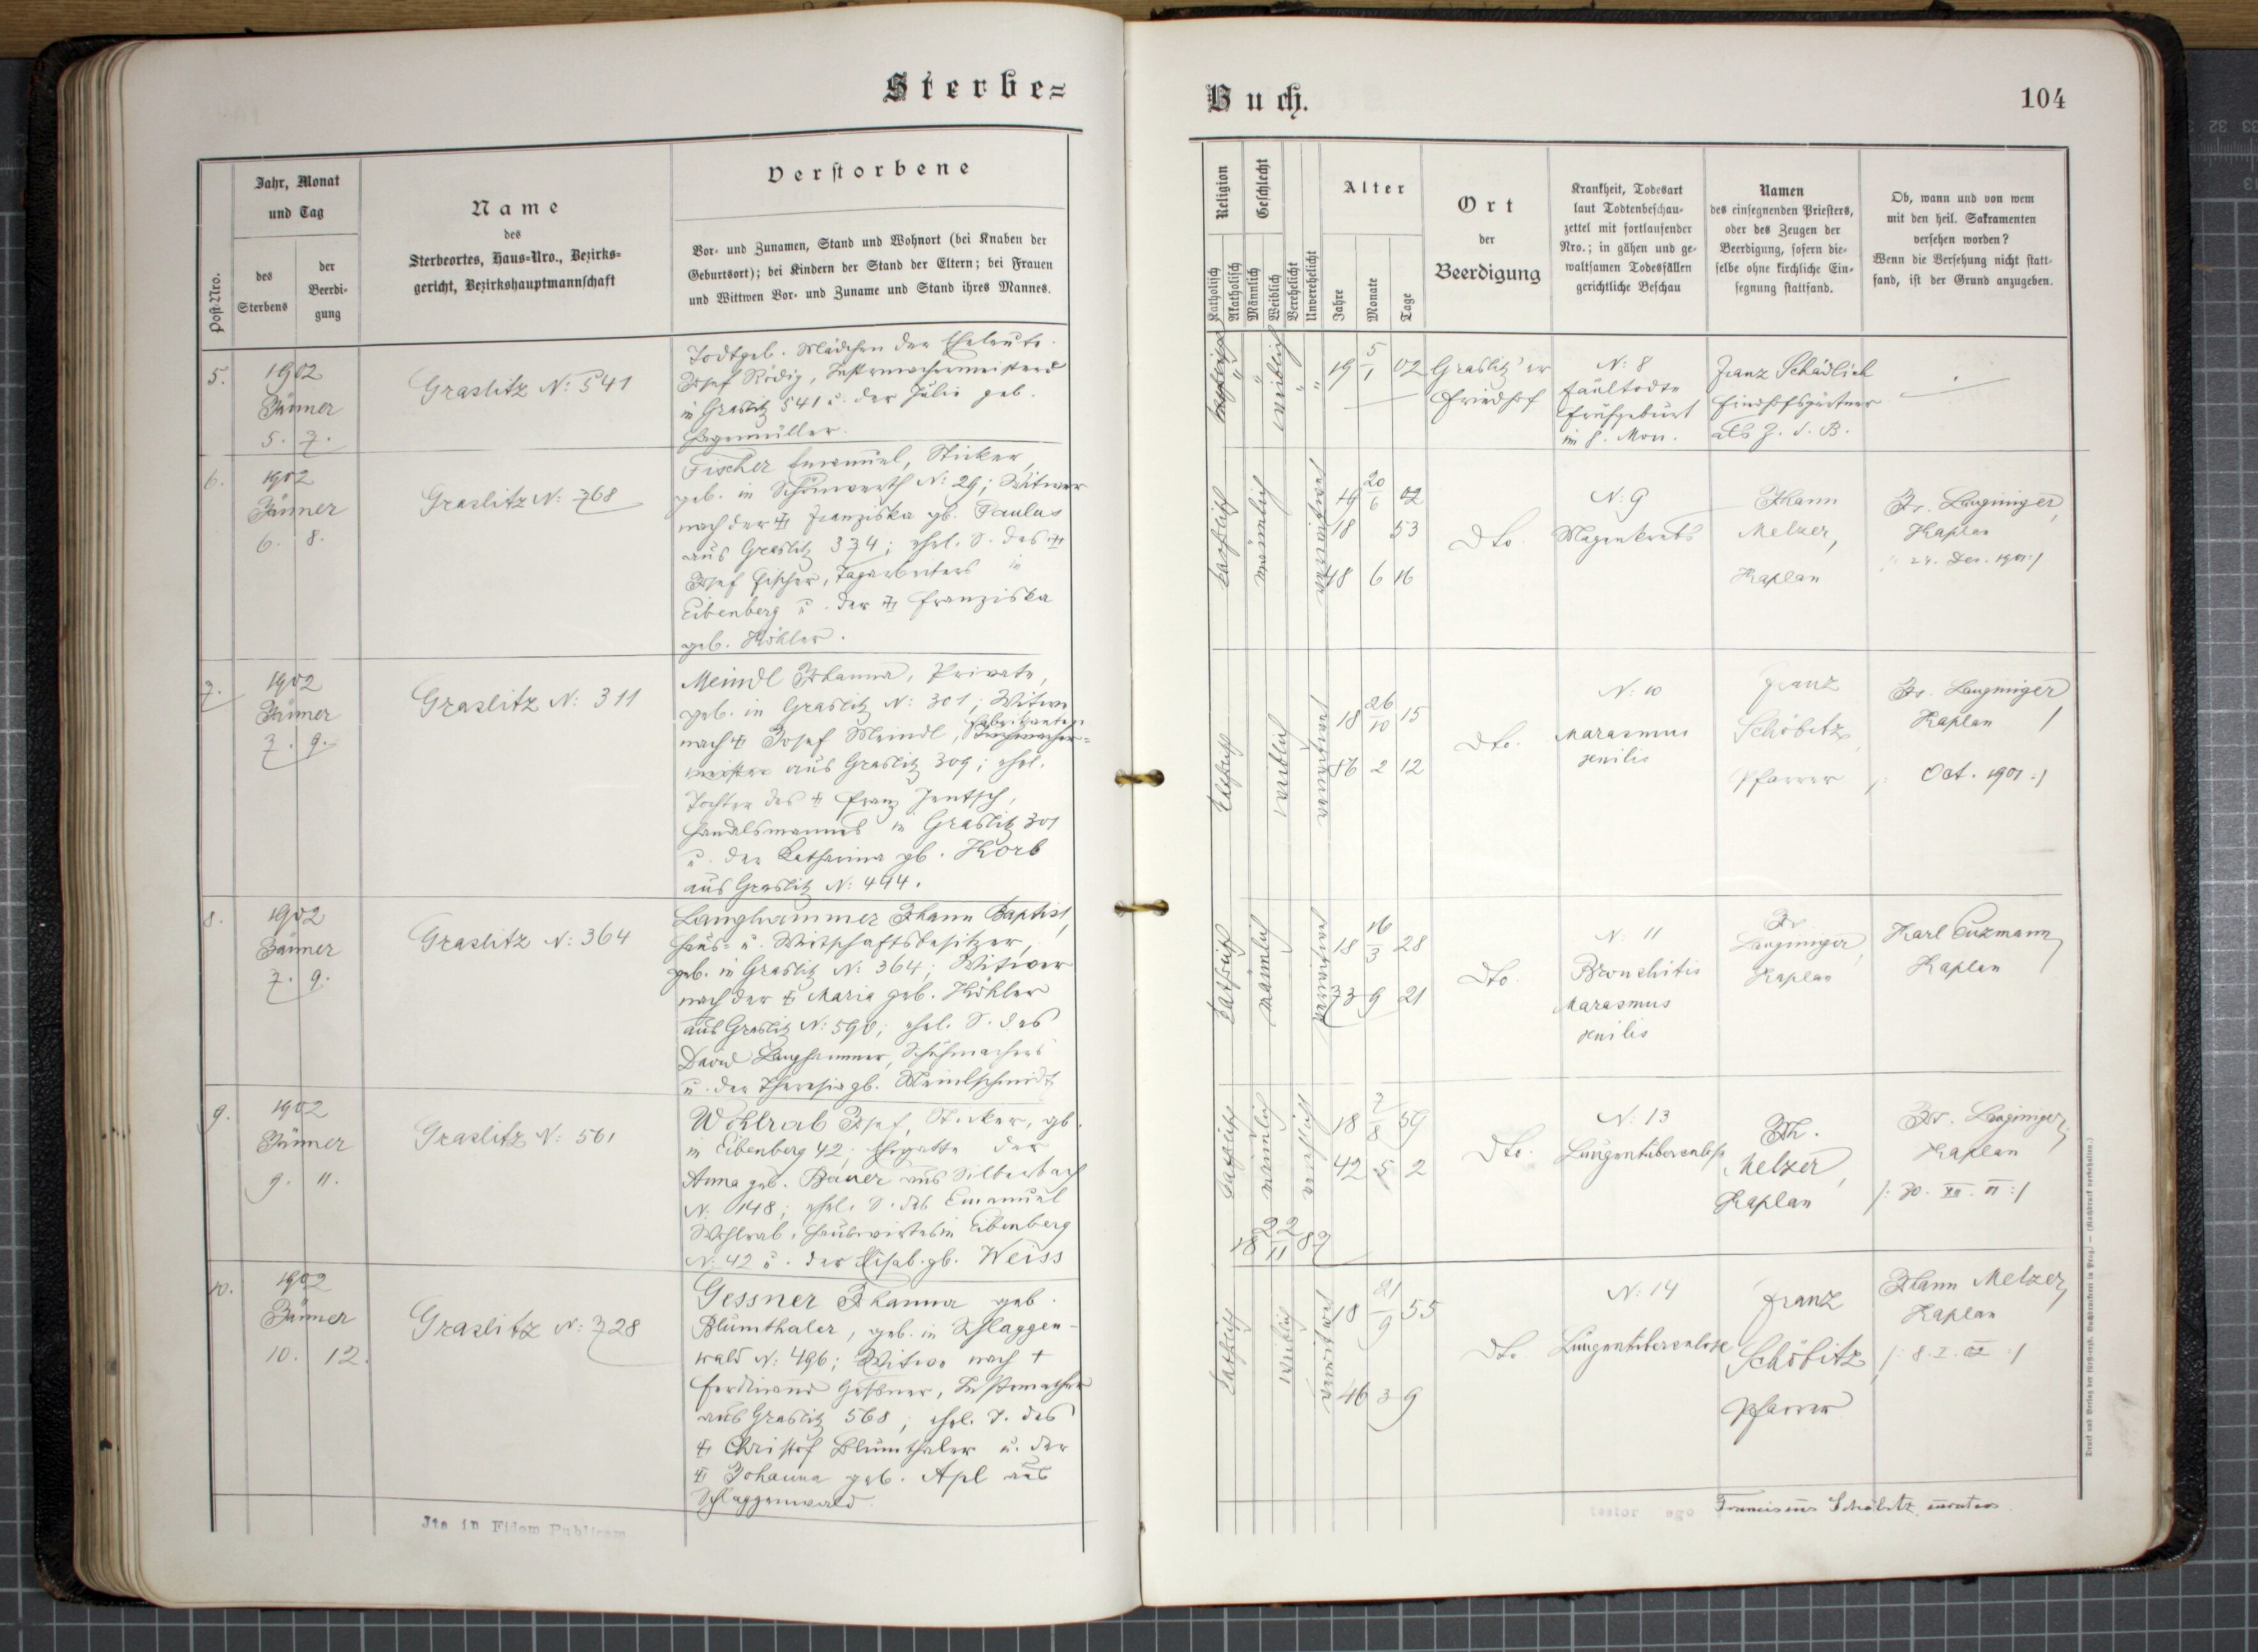 Sterbe=
Jahr, Monat
und Tag
Name
des
Sterbeortes, Haus=Nro., Bezirks=
gericht, Bezirkshauptmannschaft
Verstorbene
Post=Nro.
des
Sterbens
der
Beerdi-
gung
Vor- und Zunamen, Stand und Wohnort (bei Knaben der
Geburtsort); bei Kindern der Stand der Eltern; bei Frauen
und Wittwen Vor- und Zuname und Stand ihres Mannes.
5.
1902
Jänner
5. 7.
Graslitz N: 541
Todtgeb. Mädchen der Eheleute
Josef Rödig, Instrmachermeisters
in Graslitz 541 u. der Julie geb.
Hagenmüller.
6.
1902
Jänner
6. 8.
Graslitz N: 768
Fischer Emanuel, Sticker,
geb. in Schönwerth N: 29; Witwer
nach der † Franziska gb. Paulus
aus Graslitz 374; ehel. S. des †
Josef Fischer, Tagarbeiters in
Eibenberg u. der † Franziska
geb. Köhler.
7.
1902
Jänner
7. 9.
Graslitz N: 311
Meindl Johanna, Private,
geb. in Graslitz N: 301; Witwe
nach † Josef Meindl,
meister aus Graslitz 309; ehel.
Tochter des † Franz Jentsch,
Handelsmannes in Graslitz 301
u. der Katharina gb. Korb
aus Graslitz N: 444.
8.
1902
Jänner
7. 9.
Graslitz N: 364
Langhammer Johann Baptist,
Haus- u. Wirtschaftsbesitzer,
geb. in Graslitz N: 364; Witwer
nach der † Maria geb. Köhler
aus Graslitz N: 590; ehel. S. des
David Langhammer, Schuhmachers
u. der Theresia gb. Meinlschmidt
9.
1902
Jänner
9. 11.
Graslitz N: 561
Wohlrab Josef, Sticker, gb.
in Eibenberg 42; Ehegatte der
Anna geb. Bauer aus Silberbach
N: 148; ehel. S. des Emanuel
Wohlrab, Hauswirtes in Eibenberg
N: 42 u. der Elisab. gb. Weiss
10.
1902
Jänner
10. 12.
Graslitz N: 728
Gessner Johanna geb.
Blumthaler, geb. in Schlaggen-
wald N: 496; Witwe nach †
Ferdinand Gessner, Instrmacher
aus Graslitz 568; ehel. T. des
† Christof Blumthaler u. der
† Johanna geb. Apl aus
Schlaggenwald.
Jta in Fidem Publicam
Buch.
104
Religion
Geschlecht
Alter
Ort
der
Beerdigung
Krankheit, Todesart
laut Todtenbeschau-
zettel mit fortlaufender
Nro.; in gähen und ge-
waltsamen Todesfällen
gerichtliche Beschau
Namen
des einsegnenden Priesters,
oder des Zeugen der
Beerdigung, sofern die-
selbe ohne kirchliche Ein-
segnung stattfand.
Ob, wann und von wem
mit den heil. Sakramenten
versehen worden?
Wenn die Versehung nicht statt-
fand, ist der Grund anzugeben.
Katholisch
Akatholisch
Männlich
Weiblich
Verehelicht
Unverehelicht
Jahre
Monate
Tage
weiblich
19 5/1 02
Graslitz'er
Friedhof
N: 8
faultodte
Frühgeburt
im 8. Mon.
Franz Schädlich
Friedhofsgärtner
als Z. d. B.
katholisch
männlich
verwitwet
19 20/6 02
18 53
48 6 16
Dto.
N: 9
Magenkrebs
Johann
Melzer,
Kaplan
Fr. Langinger,
Kaplan
/: 24. Dez. 1901 :/
katholisch
weiblich
verwitwet
18 26/10 15
86 2 12
Dto.
N: 10
Marasmus
senilis
Franz
Schöbitz,
Pfarrer
Fr. Langinger
Kaplan
/: Oct. 1901 :/
katholisch
männlich
verwitwet
18 16/3 28
73 9 21
Dto.
N: 11
Bronchitis
Marasmus
senilis
Fr.
Langinger,
Kaplan
Karl Cuzmann,
Kaplan
katholisch
männlich
verehelicht
18 7/8 59
42 5 2
18 22/11 87
Dto.
N: 13
Lungentuberculose
Joh.
Melzer,
Kaplan
Fr. Langinger,
Kaplan
/: 30. XII. 01 :/
katholisch
weiblich
verwitwet
18 21/9 55
46 3 9
Dto.
N: 14
Lungentuberculose
Franz
Schöbitz,
Pfarrer
Johann Melzer,
Kaplan
/: 8. I. 02 :/
testor ego Franciscus Schöbitz, curatus.